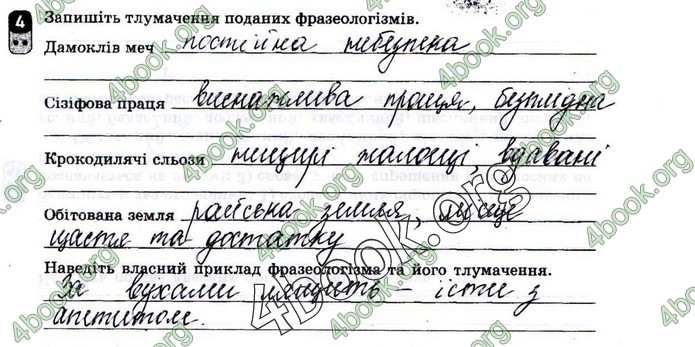 4 Запишіть тлумачення поданих фразеологізмів.
Дамоклів меч постійна небезпека
Сізіфова праця виснажлива праця, безплідна
Крокодилячі сльози нещирі жалощі, вдавані
Обітована земля райська земля, місце
щастя та достатку
Наведіть власний приклад фразеологізма та його тлумачення.
За вухами лящить – їсти з
апетитом.
4book.org